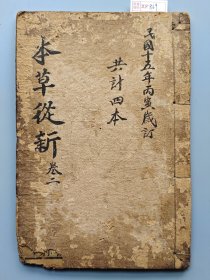 民國十五年丙寅歲訂
共計四本
本草從新
卷二